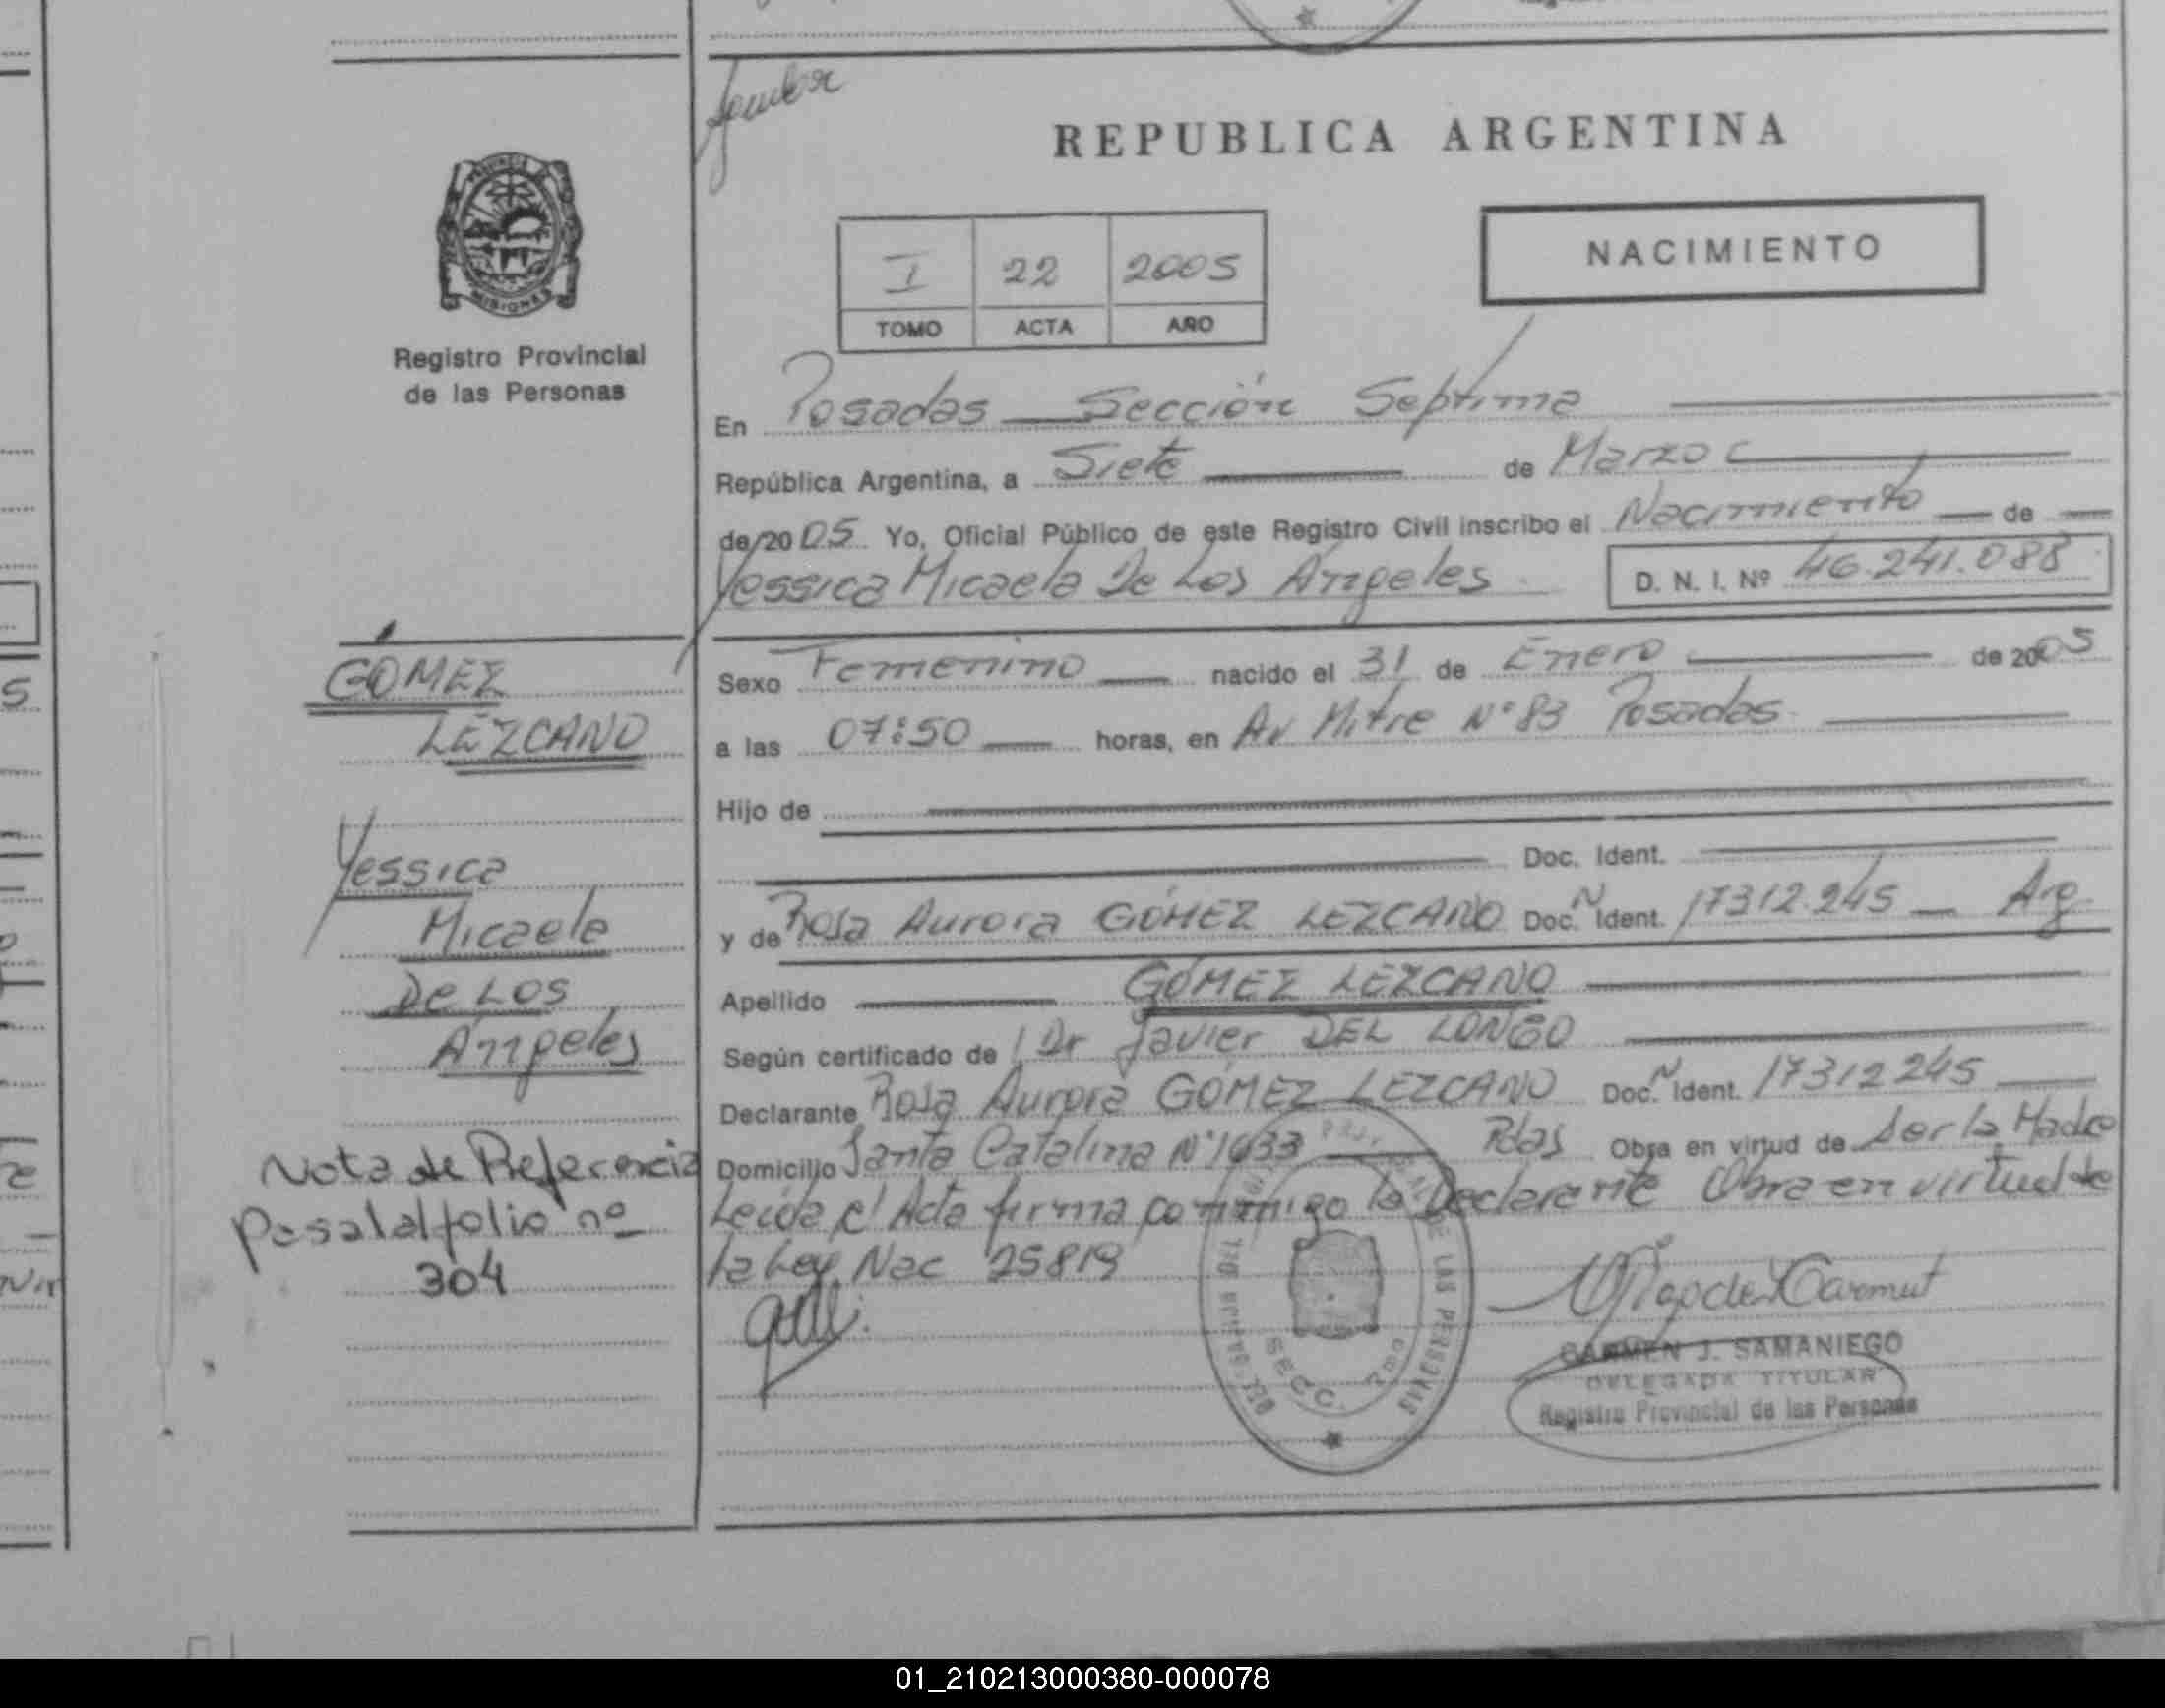 REPUBLICA ARGENTINA
NACIMIENTO
I 22 2005
TOMO ACTA AÑO
PROVINCIA DE
MISIONES
Registro Provincial
de las Personas
En Posadas Sección Septima
República Argentina, a Siete de Marzo
de 2005 Yo, Oficial Público de este Registro Civil inscribo el Nacimiento de
Yessica Micaela De Los Angeles D. N. I. Nº 46.241.088
Sexo Femenino nacido el 31 de Enero de 2005
a las 07:50 horas, en Av Mitre Nº 83 Posadas
Hijo de
Doc. Ident.
y de Rosa Aurora GÓMEZ LEZCANO Doc. N Ident. 17312.245 Arg.
Apellido GÓMEZ LEZCANO
Según certificado de Dr Javier DEL LONGO
Declarante Rosa Aurora GÓMEZ LEZCANO Doc. N Ident. 17312245
Domicilio Santa Catalina Nº 1633 Pdas Obra en virtud de Ser la Madre
Leída el Acta firma conmigo la Declarante Obra en virtud de
la Ley Nac 25819
GOMEZ
LEZCANO
Yessica
Micaela
De Los
Angeles
Nota de Referencia
Pasa al folio nº
304
DE LAS PERSONAS
SECC. 7ma
CARMEN J. SAMANIEGO
DELEGADA TITULAR
Registro Provincial de las Personas
01_210213000380-000078